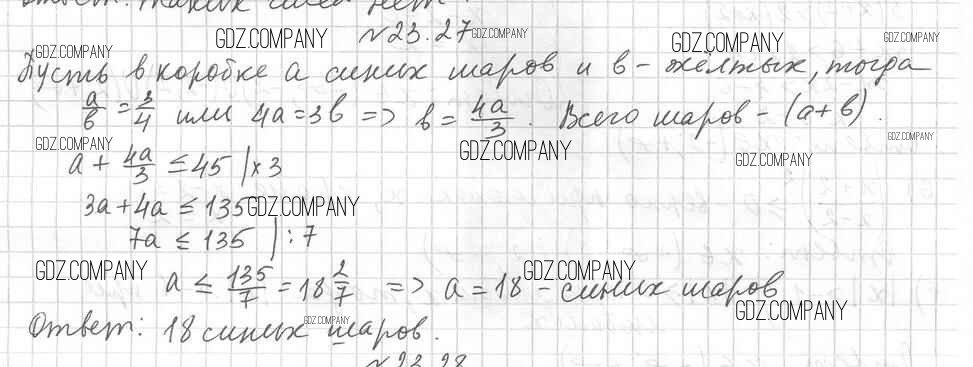 Ответ: таких чисел нет.
№23.27
Пусть в коробке a синих шаров и в - жёлтых, тогда
a/в = 3/4 или 4a = 3в => в = 4a/3. Всего шаров - (a + в).
a + 4a/3 ≤ 45 | x 3
3a + 4a ≤ 135
7a ≤ 135 | : 7
a ≤ 135/7 = 18 2/7 => a = 18 - синих шаров
Ответ: 18 синих шаров.
№23.28
GDZ.COMPANY
GDZ.COMPANY
GDZ.COMPANY
GDZ.COMPANY
GDZ.COMPANY
GDZ.COMPANY
GDZ.COMPANY
GDZ.COMPANY
GDZ.COMPANY
GDZ.COMPANY
GDZ.COMPANY
GDZ.COMPANY
GDZ.COMPANY
GDZ.COMPANY